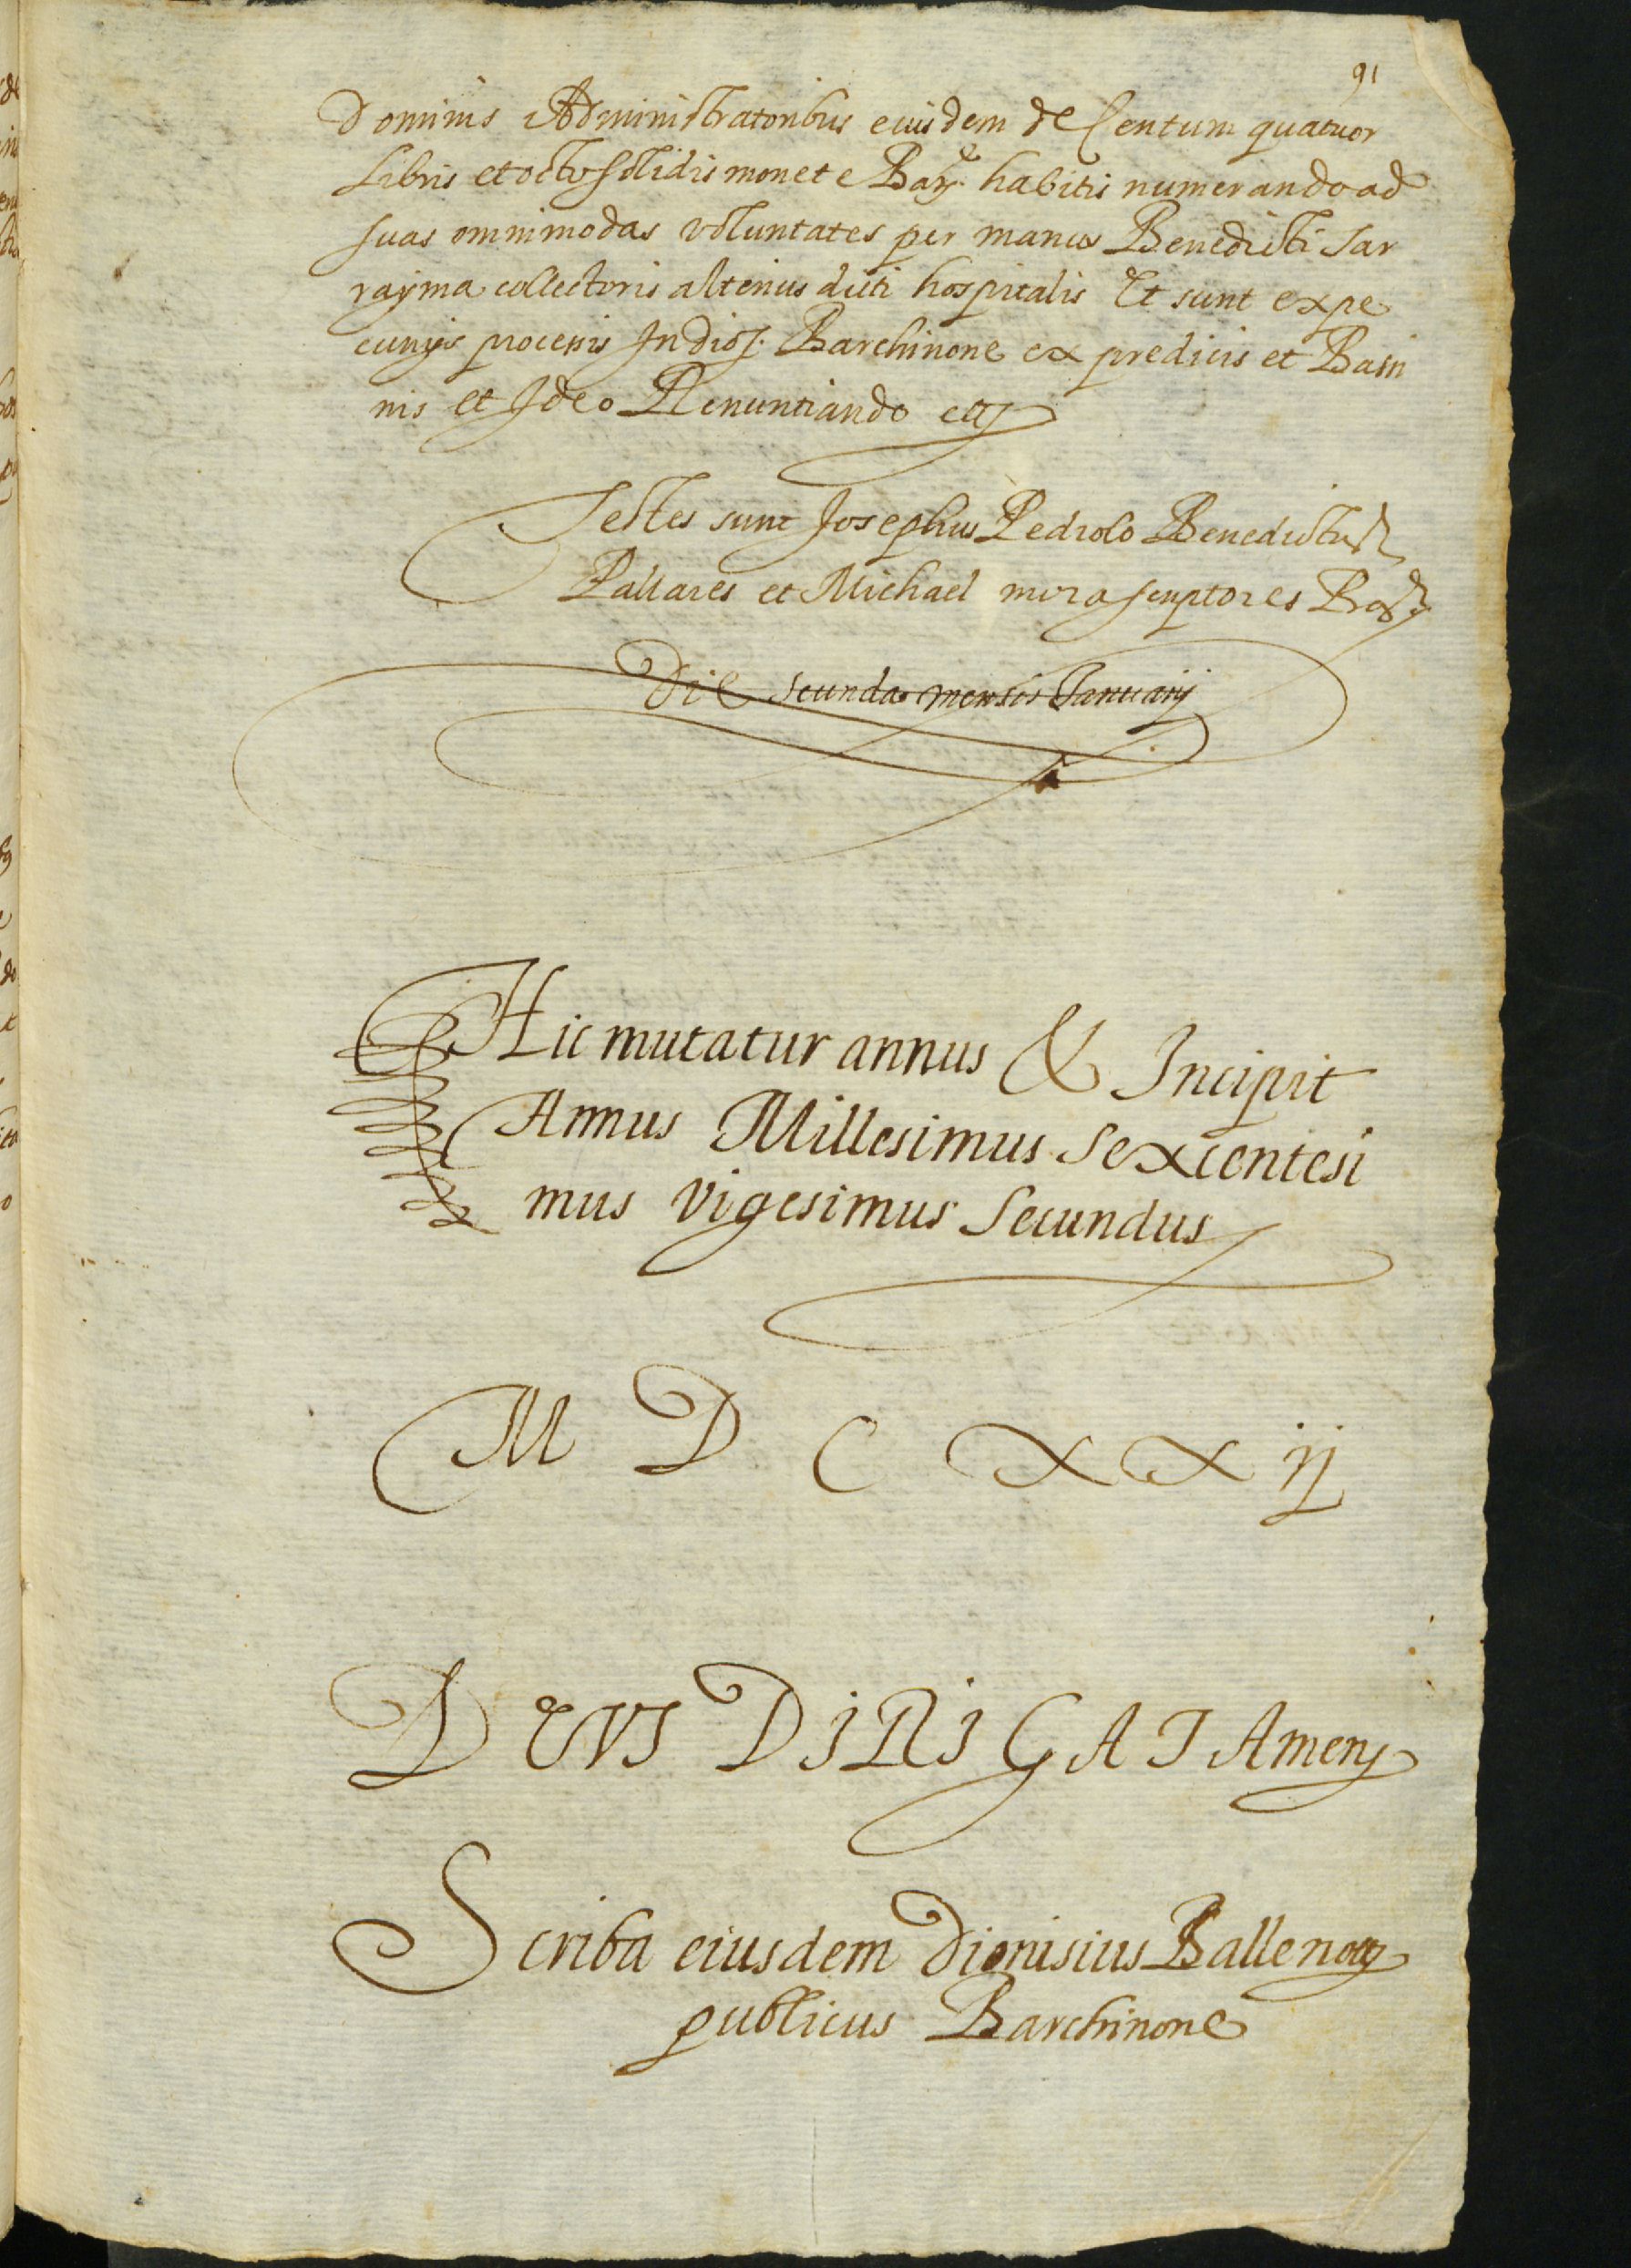 91
Dominis Administratoribus eiusdem de Centum quatuor
Libris et octo solidis monete Bar.e habitis numerando ad
suas omnimodas voluntates per manus Benedicti Sar
rayma collectoris alterius dicti hospitalis Et sunt ex pe
cunijs Barchinone ex predicis et Basi
nis et Ideo Renuntiando etc
Testes sunt Josephus Pedrolo Benedictus
Pallares et Michael mira scriptores
Die secunda mensis Januarij
Hic mutatur annus & Incipit
Annus Millesimus Sexcentesi
mus vigesimus Secundus
M D C X X ij
DEVS DiRiGAT Amen
Scriba eiusdem Dionisius Balle not
publicus Barchinone